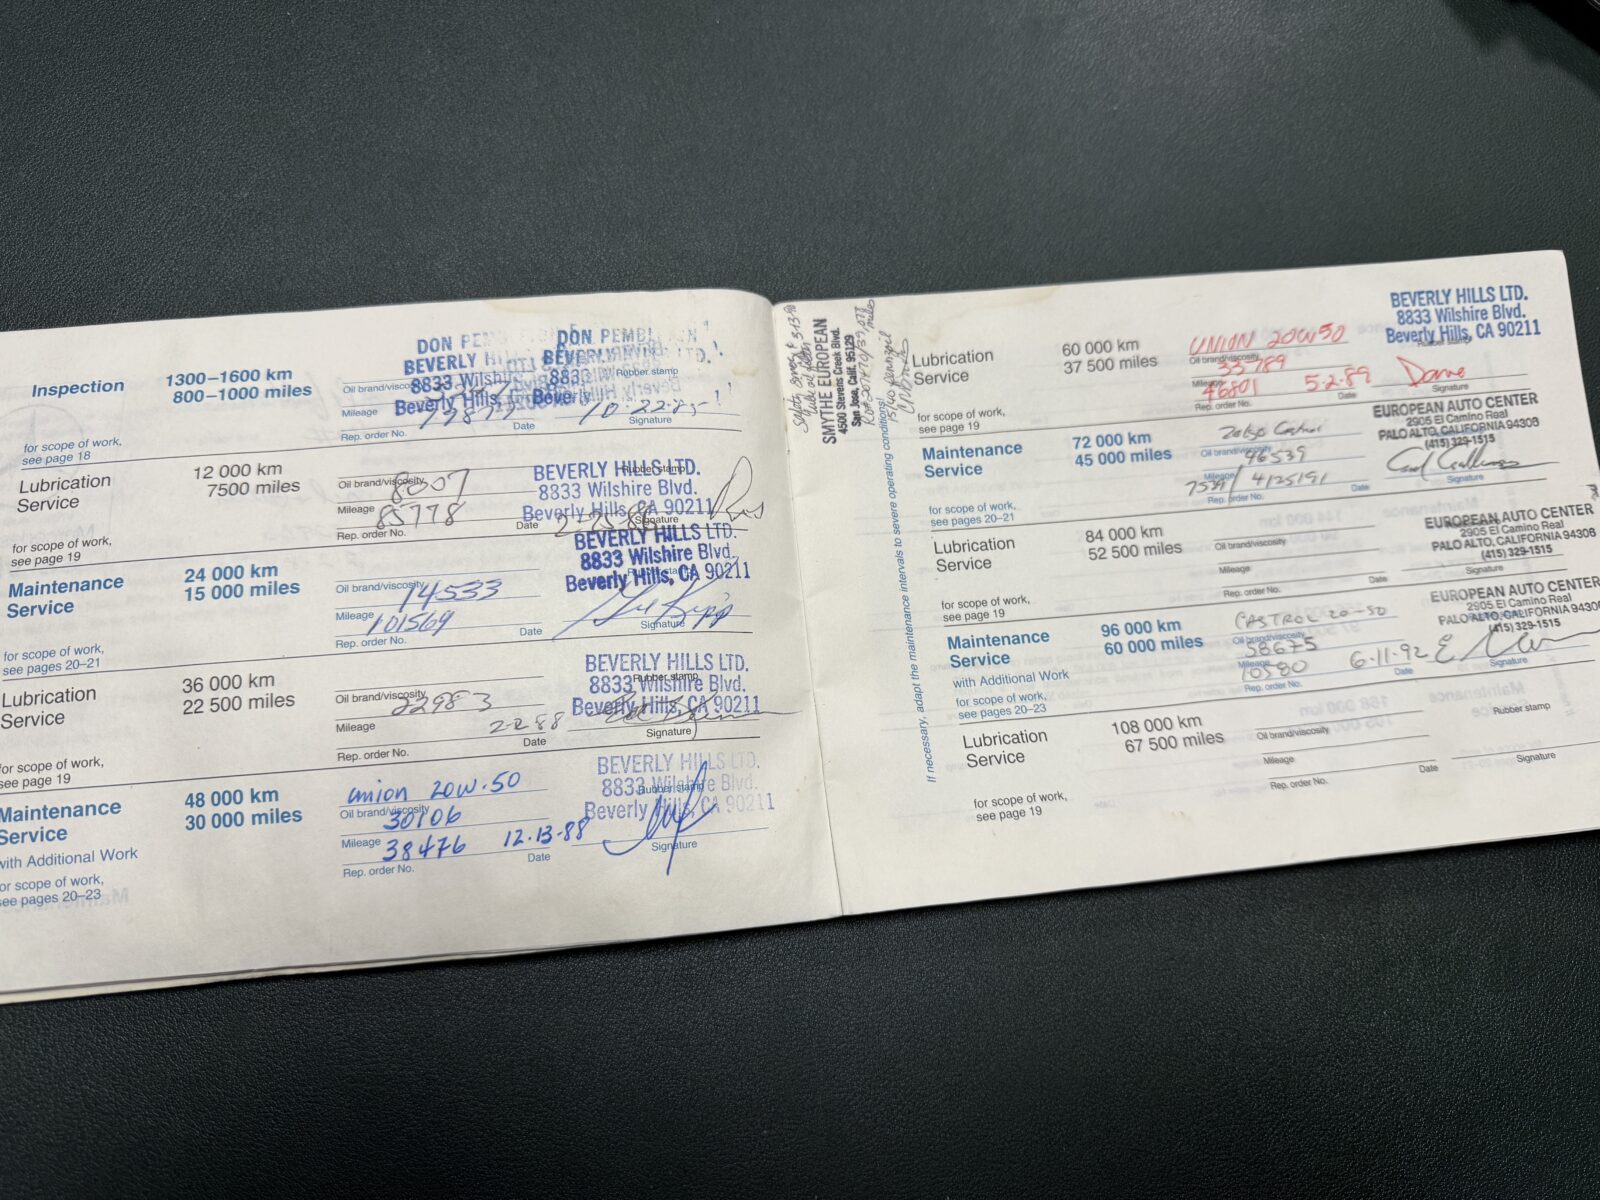 Inspection
1300–1600 km
800–1000 miles
DON
BEVERLY
8833 Wilshire
Beverly Hills,
DON PEMB
8833
Beverly
Rubber stamp
Oil brand/viscosity
Mileage
10-22-85
Rep. order No.
Date
Signature
for scope of work,
see page 18
Lubrication
Service
12 000 km
7500 miles
Oil brand/viscosity
8007
Mileage
85778
Rep. order No.
Date
BEVERLY HILLS LTD.
8833 Wilshire Blvd.
Beverly Hills, CA 90211
Rubber stamp
Signature
for scope of work,
see page 19
Maintenance
Service
24 000 km
15 000 miles
Oil brand/viscosity
14533
Mileage
101569
Rep. order No.
Date
BEVERLY HILLS LTD.
8833 Wilshire Blvd.
Beverly Hills, CA 90211
Signature
for scope of work,
see pages 20–21
Lubrication
Service
36 000 km
22 500 miles
Oil brand/viscosity
22983
Mileage
2-2-88
Rep. order No.
Date
BEVERLY HILLS LTD.
Rubber stamp
8833 Wilshire Blvd.
Beverly Hills, CA 90211
Signature
for scope of work,
see page 19
Maintenance
Service
with Additional Work
48 000 km
30 000 miles
union 20W-50
Oil brand/viscosity
30106
Mileage
38476
12-13-88
Rep. order No.
Date
BEVERLY HILLS LTD.
8833 Wilshire Blvd.
Rubber stamp
Beverly Hills, CA 90211
Signature
for scope of work,
see pages 20–23
SMYTHE EUROPEAN
4500 Stevens Creek Blvd.
San Jose, Calif. 95129
15/40 pennzoil
If necessary, adapt the maintenance intervals to severe operating conditions!
Lubrication
Service
60 000 km
37 500 miles
UNION 20W50
Oil brand/viscosity
35789
Mileage
46801
5-2-89
Rep. order No.
Date
BEVERLY HILLS LTD.
8833 Wilshire Blvd.
Beverly Hills, CA 90211
Rubber stamp
Signature
for scope of work,
see page 19
Maintenance
Service
72 000 km
45 000 miles
Oil brand/viscosity
46539
Mileage
7539
4/25/91
Rep. order No.
Date
EUROPEAN AUTO CENTER
2905 El Camino Real
PALO ALTO, CALIFORNIA 94306
(415) 329-1515
Signature
for scope of work,
see pages 20–21
Lubrication
Service
84 000 km
52 500 miles
Oil brand/viscosity
Mileage
Rep. order No.
Date
EUROPEAN AUTO CENTER
2905 El Camino Real
PALO ALTO, CALIFORNIA 94306
(415) 329-1515
Signature
for scope of work,
see page 19
Maintenance
Service
with Additional Work
96 000 km
60 000 miles
CASTROL 20-50
Oil brand/viscosity
58675
Mileage
10580
6-11-92
Rep. order No.
Date
EUROPEAN AUTO CENTER
2905 El Camino Real
PALO ALTO, CALIFORNIA 94306
(415) 329-1515
Signature
for scope of work,
see pages 20–23
Lubrication
Service
108 000 km
67 500 miles
Oil brand/viscosity
Mileage
Rep. order No.
Date
Rubber stamp
Signature
for scope of work,
see page 19